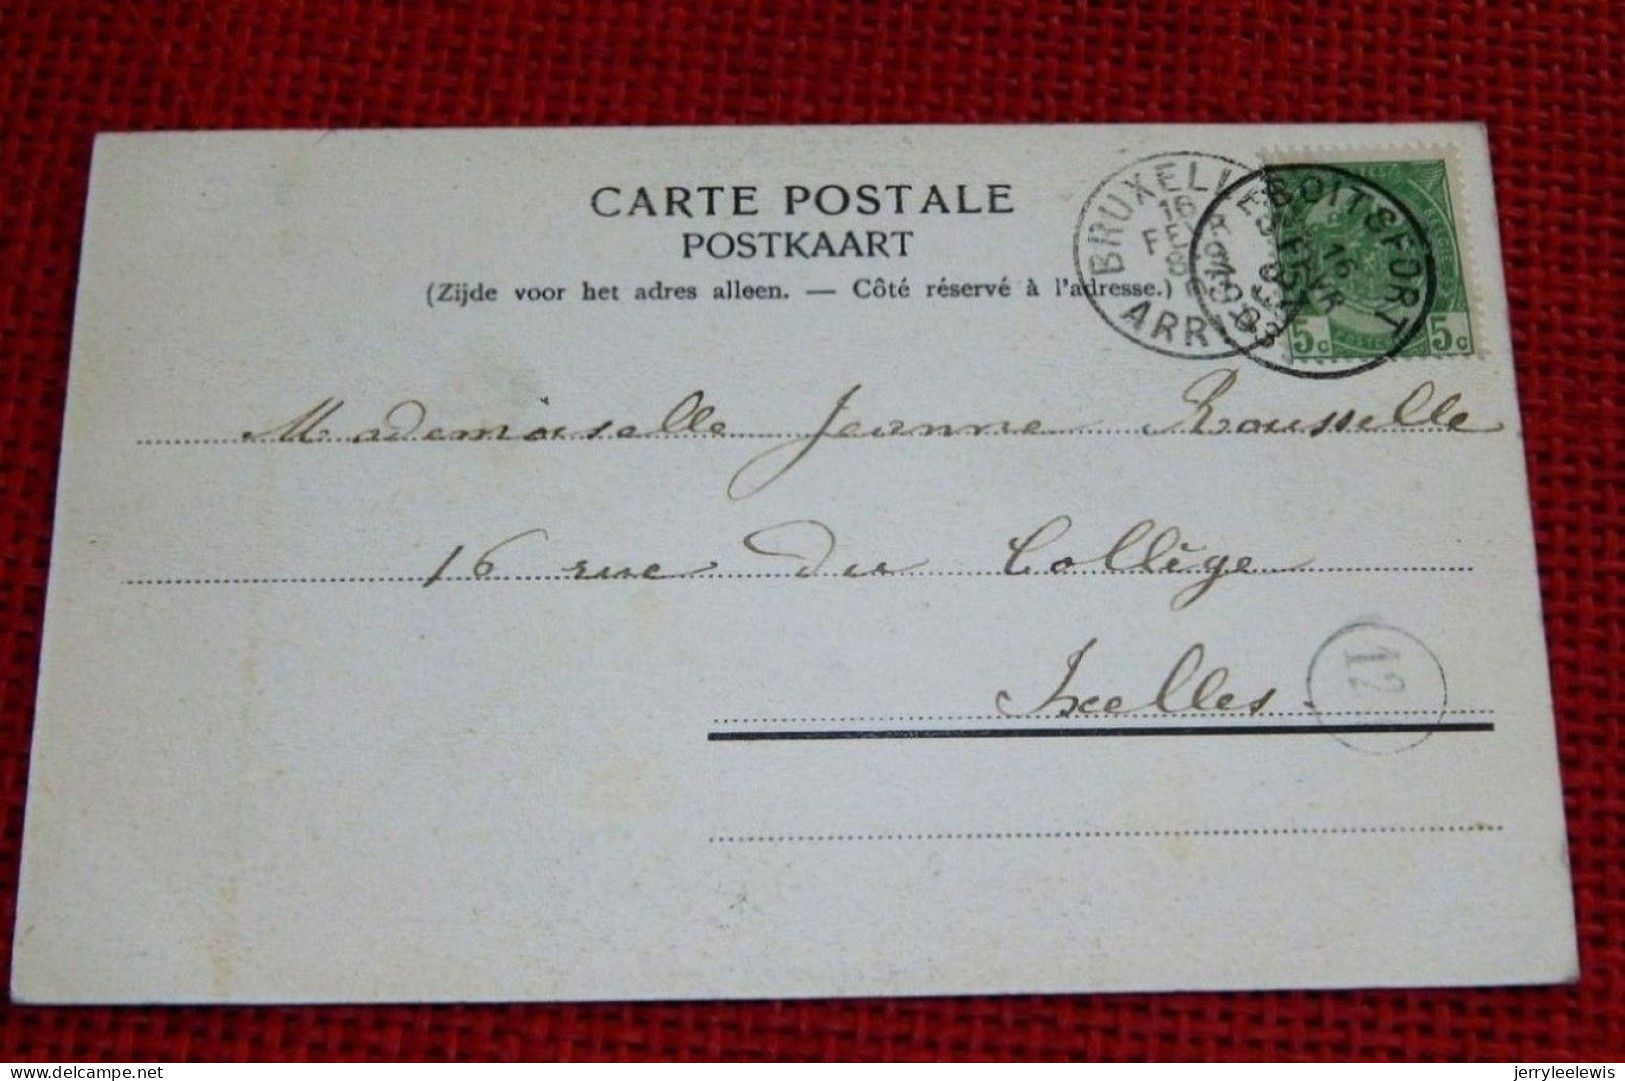 CARTE POSTALE
POSTKAART
(Zijde voor het adres alleen. — Côté réservé à l'adresse.)
BRUXELLES
ARR
BOITSFORT
16
5c 5c
Mademoiselle Jeanne Rousselle
16 rue du Collège
Ixelles
12
delcampe.net
jerryleelewis